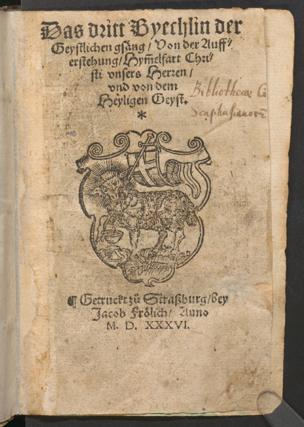 Das dritt Byechlin der
Geystlichen gsäng / Von der Auff⸗
erstehung / Hym̃elfart Chri⸗
sti vnsers Herren /
vnd von dem
Heyligen Geyst.
*
Bibliothecae C
¶ Getruckt zů Straßburg / bey
Jacob Frölich / Anno
M. D. XXXVI.